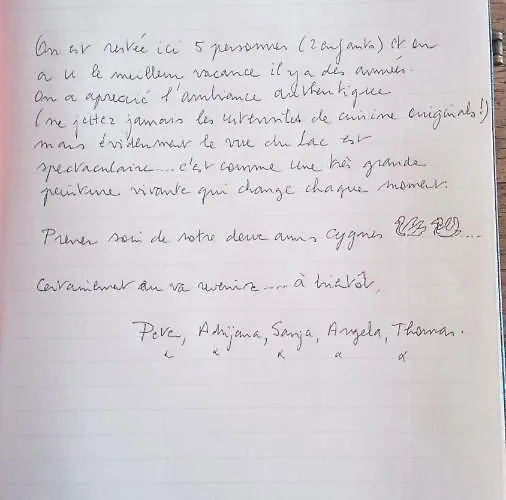 On est restée ici 5 personnes (2 enfants) et on
a u le meilleur vacance il y a des années.
On a aprecié l'ambiance authentique
(ne jettez jamais les ustensiles de cuisine originals!)
mais évidemment le vue du Lac est
spectaculaire.... c'est comme une très grande
peinture vivante qui change chaque moment.
Prener soin de notre deux amis cygnes ....
Certainement on va revenire.... à bientôt,
Petra, Adrijana, Sanja, Angela, Thomas.